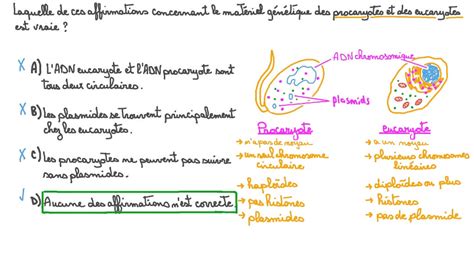 Laquelle de ces affirmations concernant le matériel génétique des procaryotes et des eucaryotes
est vraie ?
X A) L'ADN eucaryote et l'ADN procaryote sont
tous deux circulaires.
X B) Les plasmides se trouvent principalement
chez les eucaryotes.
X C) Les procaryotes ne peuvent pas survivre
sans plasmides.
✓ D) Aucune des affirmations n'est correcte.
ADN chromosomique
plasmids
Procaryote
→ n'a pas de noyau
→ un seul chromosome
circulaire
→ haploïdes
→ pas histones
→ plasmides
eucaryote
→ a un noyau
→ plusieurs chromosomes
linéaires
→ diploïdes ou plus
→ histones
→ pas de plasmide